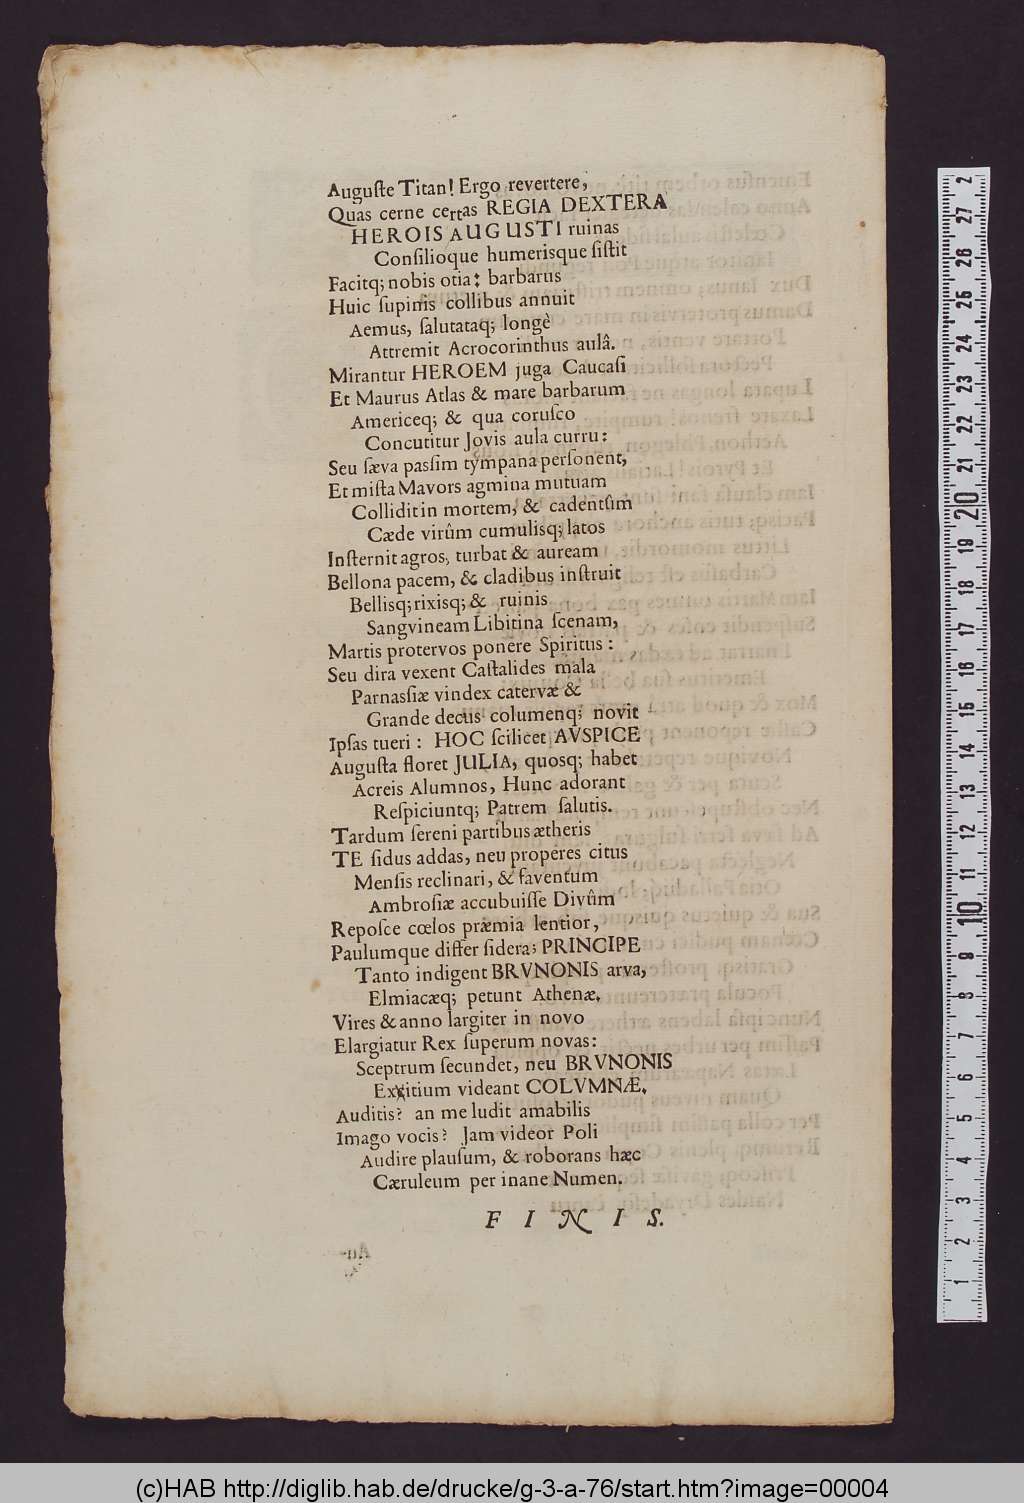 Auguſte Titan! Ergo revertere,
Quas cerne certas REGIA DEXTERA
HEROIS AUGUSTI ruinas
Conſilioque humerisque ſiſtit
Facitq; nobis otia: barbarus
Huic ſupinis collibus annuit
Aemus, ſalutataq; longè
Attremit Acrocorinthus aulâ.
Mirantur HEROEM juga Caucaſi
Et Maurus Atlas & mare barbarum
Americeq; & qua coruſco
Concutitur Jovis aula curru:
Seu ſæva paſſim tympana perſonent,
Et miſta Mavors agmina mutuam
Collidit in mortem, & cadentûm
Cæde virûm cumulisq; latos
Inſternit agros, turbat & auream
Bellona pacem, & cladibus inſtruit
Bellisq; rixisq; & ruinis
Sangvineam Libitina ſcenam,
Martis protervos ponere Spiritus:
Seu dira vexent Caſtalides mala
Parnaſſiæ vindex catervæ &
Grande decus columenq; novit
Ipſas tueri: HOC ſcilicet AVSPICE
Auguſta floret JULIA, quosq; habet
Acreis Alumnos, Hunc adorant
Reſpiciuntq; Patrem ſalutis.
Tardum ſereni partibus ætheris
TE ſidus addas, neu properes citus
Menſis reclinari, & faventum
Ambroſiæ accubuiſſe Divûm
Repoſce cœlos præmia lentior,
Paulumque differ ſidera; PRINCIPE
Tanto indigent BRVNONIS arva,
Elmiacæq; petunt Athenæ.
Vires & anno largiter in novo
Elargiatur Rex ſuperum novas:
Sceptrum ſecundet, neu BRVNONIS
Exitium videant COLVMNÆ.
Auditis? an me ludit amabilis
Imago vocis? Jam videor Poli
Audire plauſum, & roborans hæc
Cæruleum per inane Numen.
FINIS.
(c)HAB http://diglib.hab.de/drucke/g-3-a-76/start.htm?image=00004